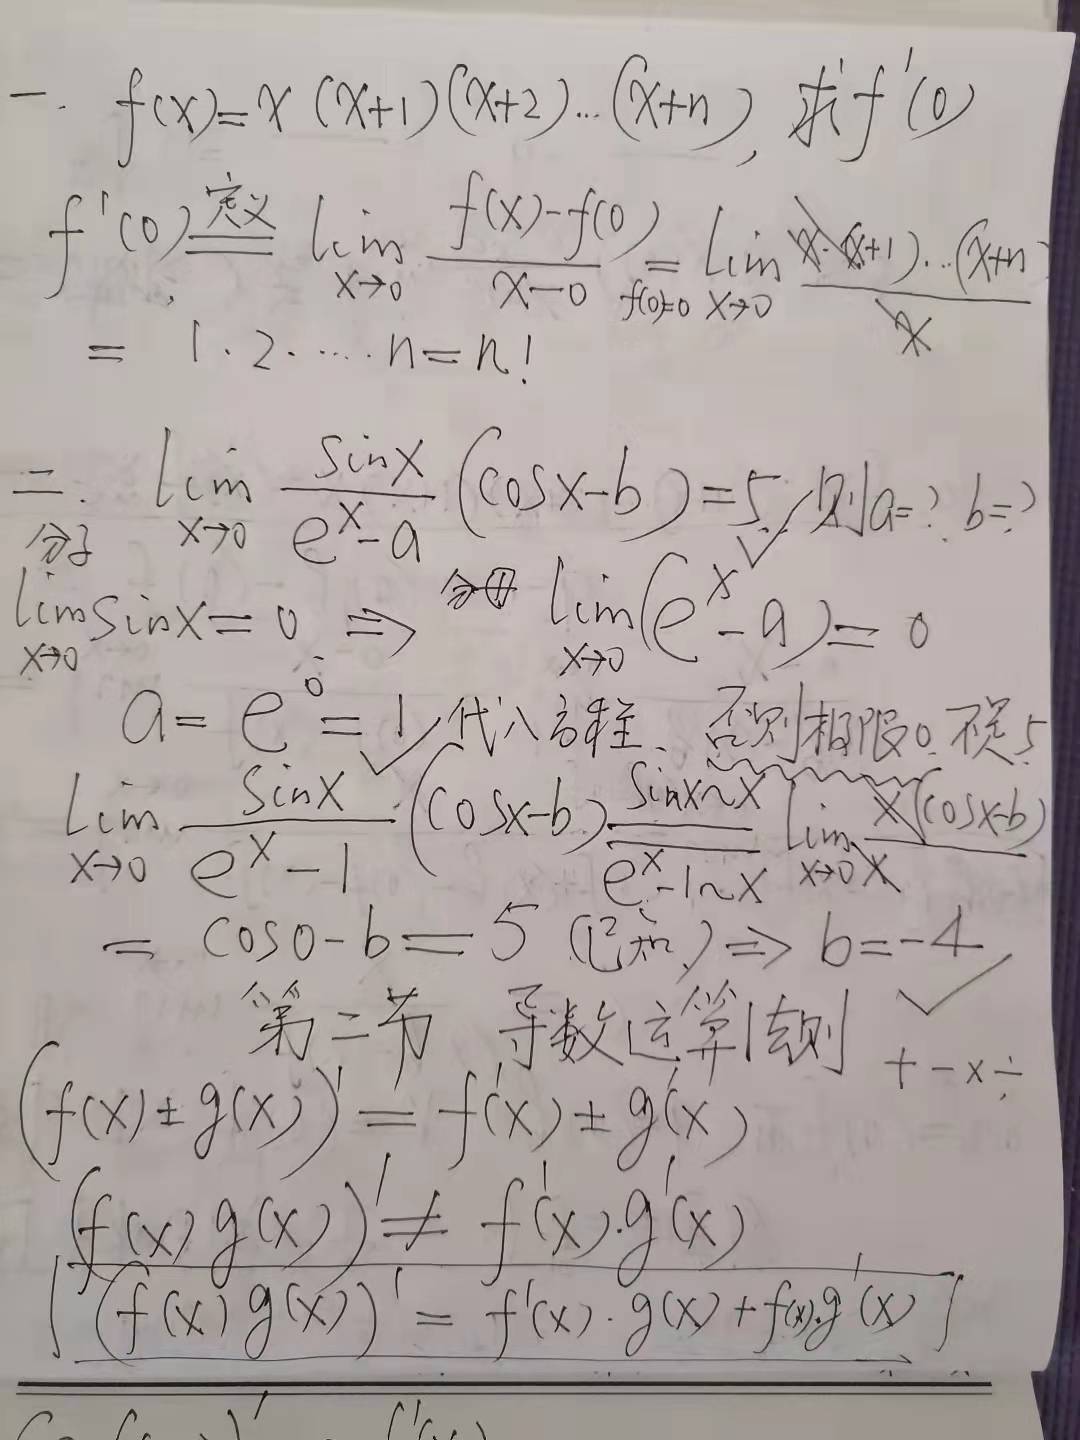 一. f(x)=x(x+1)(x+2)…(x+n), 求f'(0)
f'(0) 定义== lim x→0 (f(x)-f(0))/(x-0) = f(0)=0 lim x→0 x·(x+1)…(x+n)/x
= 1·2·…·n=n!
二. lim x→0 sinx/(e^x-a) (cosx-b)=5, 则a=? b=?
分子 lim x→0 sinx=0 ⇒ 分母 lim x→0 (e^x-a)=0
a=e^0=1 代入方程、否则极限0.不是5
lim x→0 sinx/(e^x-1)·(cosx-b) sinx~x == e^x-1~x lim x→0 x(cosx-b)/x
= cos0-b=5 (已知)⇒ b=-4
第二节 导数运算法则 +-×÷
(f(x)±g(x))'=f'(x)±g'(x)
(f(x)g(x))'≠f'(x)·g'(x)
[(f(x)g(x))'=f'(x)·g(x)+f(x)·g'(x)]